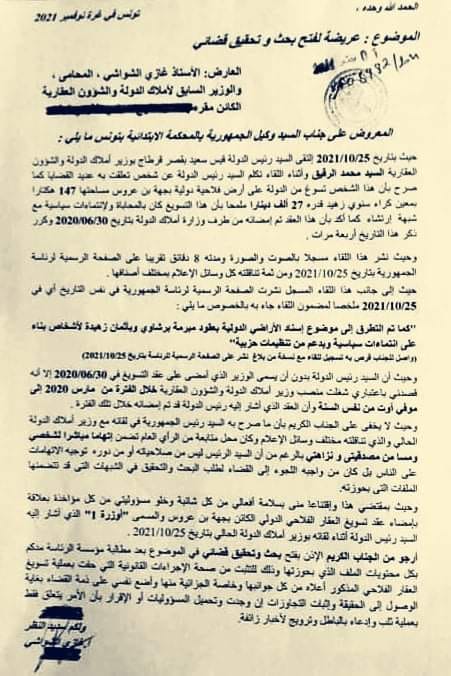 الحمد لله وحده ،
تونس في غرة نوفمبر 2021
الموضوع : عريضة لفتح بحث و تحقيق قضائي
العارض: الأستاذ غازي الشواشي ، المحامي ،
والوزير السابق لأملاك الدولة والشؤون العقارية
الكائن مقره
المعروض على جناب السيد وكيل الجمهورية بالمحكمة الابتدائية بتونس ما يلي :
حيث بتاريخ 2021/10/25 إلتقى السيد رئيس الدولة قيس سعيد بقصر قرطاج بوزير أملاك الدولة والشؤون
العقارية السيد محمد الرقيق وأثناء اللقاء تكلم السيد رئيس الدولة عن شخص تعلقت به عديد القضايا كما
صرح بأن هذا الشخص تسوغ من الدولة على أرض فلاحية دولية بجهة بن عروس مساحتها 147 هكتارا
بمعين كراء سنوي زهيد قدره 27 ألف دينارا ملمحا بأن هذا التسويغ كان بالمحاباة ولإنتماءات سياسية مع
شبهة إرتشاء كما أكد بأن هذا العقد تم إمضائه من طرف وزارة أملاك الدولة بتاريخ 2020/06/30 وكرر
ذكر هذا التاريخ أربعة مرات .
وحيث نشر هذا اللقاء مسجلا بالصوت والصورة ومدته 8 دقائق تقريبا على الصفحة الرسمية لرئاسة
الجمهورية بتاريخ 2021/10/25 ومن ثمة تناقلته كل وسائل الإعلام بمختلف أصنافها .
حيث إلى جانب هذا اللقاء المسجل نشرت الصفحة الرسمية لرئاسة الجمهورية في نفس التاريخ أي في
2021/10/25 ملخصا لمضمون اللقاء جاء به بالخصوص ما يلي :
"كما تم التطرق إلى موضوع إسناد الأراضي الدولية بعقود مبرمة برشاوي وبأثمان زهيدة لأشخاص بناء
على انتماءات سياسية وبدعم من تنظيمات حزبية"
(واصل للجناب قرص به تسجيل للقاء مع نسخة من بلاغ نشر على الصفحة الرسمية للرئاسة بتاريخ 2021/10/25)
وحيث أن السيد رئيس الدولة بدون أن يسمي الوزير الذي أمضى على عقد التسويغ في 2020/06/30 إلا أنه
قصدني باعتباري شغلت منصب وزير أملاك الدولة والشؤون العقارية خلال الفترة من مارس 2020 إلى
موفى أوت من نفس السنة وأن العقد الذي أشار إليه رئيس الدولة قد تم إمضائه خلال تلك الفترة .
وحيث لا يخفى على الجناب الكريم بأن ما صرح به السيد رئيس الجمهورية في لقائه مع وزير أملاك الدولة
الحالي والذي تناقلته مختلف وسائل الإعلام وكان محل متابعة من الرأي العام تضمن إتهاما مباشرا لشخصي
ومسا من مصداقيتي و نزاهتي بالرغم من أن السيد الرئيس ليس من صلاحياته أو من دوره توجيه الاتهامات
على الناس بل كان من واجبه اللجوء إلى القضاء لطلب البحث والتحقيق في الشبهات التي قد تتضمنها
الملفات التي بحوزته.
وحيث بمقتضى هذا وإقتناعا مني بسلامة أفعالي من كل شائبة وخلو مسؤوليتي من كل مؤاخذة بعلاقة
بإمضاء عقد تسويغ العقار الفلاحي الدولي الكائن بجهة بن عروس والمسمى "أوزرة 1" الذي أشار إليه
السيد رئيس الدولة أثناء لقائه بوزير أملاك الدولة الحالي بتاريخ 2021/10/25 .
أرجو من الجناب الكريم الإذن بفتح بحث وتحقيق قضائي في الموضوع بعد مطالبة مؤسسة الرئاسة مدكم
بكل محتويات الملف الذي بحوزتها وذلك للتثبت من صحة الإجراءات القانونية التي حفت بعملية تسويغ
العقار الفلاحي المذكور أعلاه من كل جوانبها وخاصة الجزائية منها وأضع نفسي على ذمة القضاء بغاية
الوصول إلى الحقيقة وإثبات التجاوزات إن وجدت وتحميل المسؤوليات أو الإقرار بأن الأمر يتعلق فقط
بعملية ثلب وإدعاء بالباطل وترويج لأخبار زائفة.
ولكم سديد النظر
غازي الشواشي